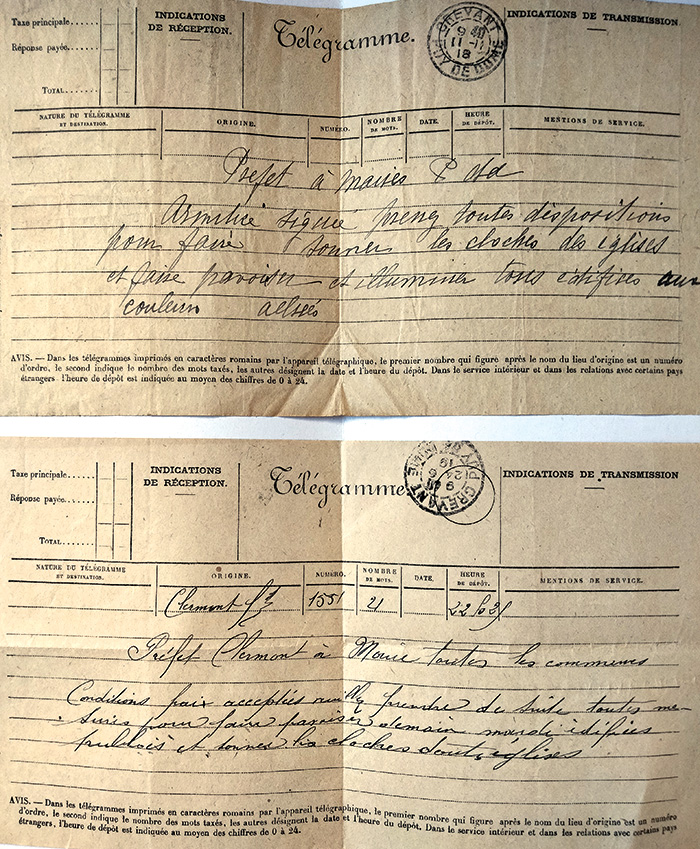 Taxe principale
Réponse payée
TOTAL
INDICATIONS
DE RÉCEPTION.
Télégramme.
GREVANT
9 40
11 -11
18
PUY DE DOME
INDICATIONS DE TRANSMISSION.
NATURE DU TÉLÉGRAMME
ET DESTINATION.
ORIGINE.
NUMÉRO.
NOMBRE
DE MOTS.
DATE.
HEURE
DE DÉPÔT.
MENTIONS DE SERVICE.
Préfet à maires P
Armistice signé prenez toutes dispositions
pour faire sonner les cloches des églises
et faire pavoiser et illuminer tous édifices aux
couleurs alliées
AVIS. — Dans les télégrammes imprimés en caractères romains par l'appareil télégraphique, le premier nombre qui figure après le nom du lieu d'origine est un numéro
d'ordre, le second indique le nombre des mots taxés, les autres désignent la date et l'heure du dépôt. Dans le service intérieur et dans les relations avec certains pays
étrangers l'heure de dépôt est indiquée au moyen des chiffres de 0 à 24.
Taxe principale
Réponse payée
TOTAL
INDICATIONS
DE RÉCEPTION.
Télégramme.
GREVANT
9
24 6
19
PUY DE DOME
INDICATIONS DE TRANSMISSION
NATURE DU TÉLÉGRAMME
ET DESTINATION.
ORIGINE.
NUMÉRO.
NOMBRE
DE MOTS.
DATE.
HEURE
DE DÉPÔT.
MENTIONS DE SERVICE.
Clermont 1551 21
Préfet Clermont à Maire toutes les communes
Conditions paix acceptées prendre de suite toutes me-
sures pour faire pavoiser demain mardi édifices
publics et sonner les cloches églises
AVIS. — Dans les télégrammes imprimés en caractères romains par l'appareil télégraphique, le premier nombre qui figure après le nom du lieu d'origine est un numéro
d'ordre, le second indique le nombre des mots taxés, les autres désignent la date et l'heure du dépôt. Dans le service intérieur et dans les relations avec certains pays
étrangers, l'heure de dépôt est indiquée au moyen des chiffres de 0 à 24.